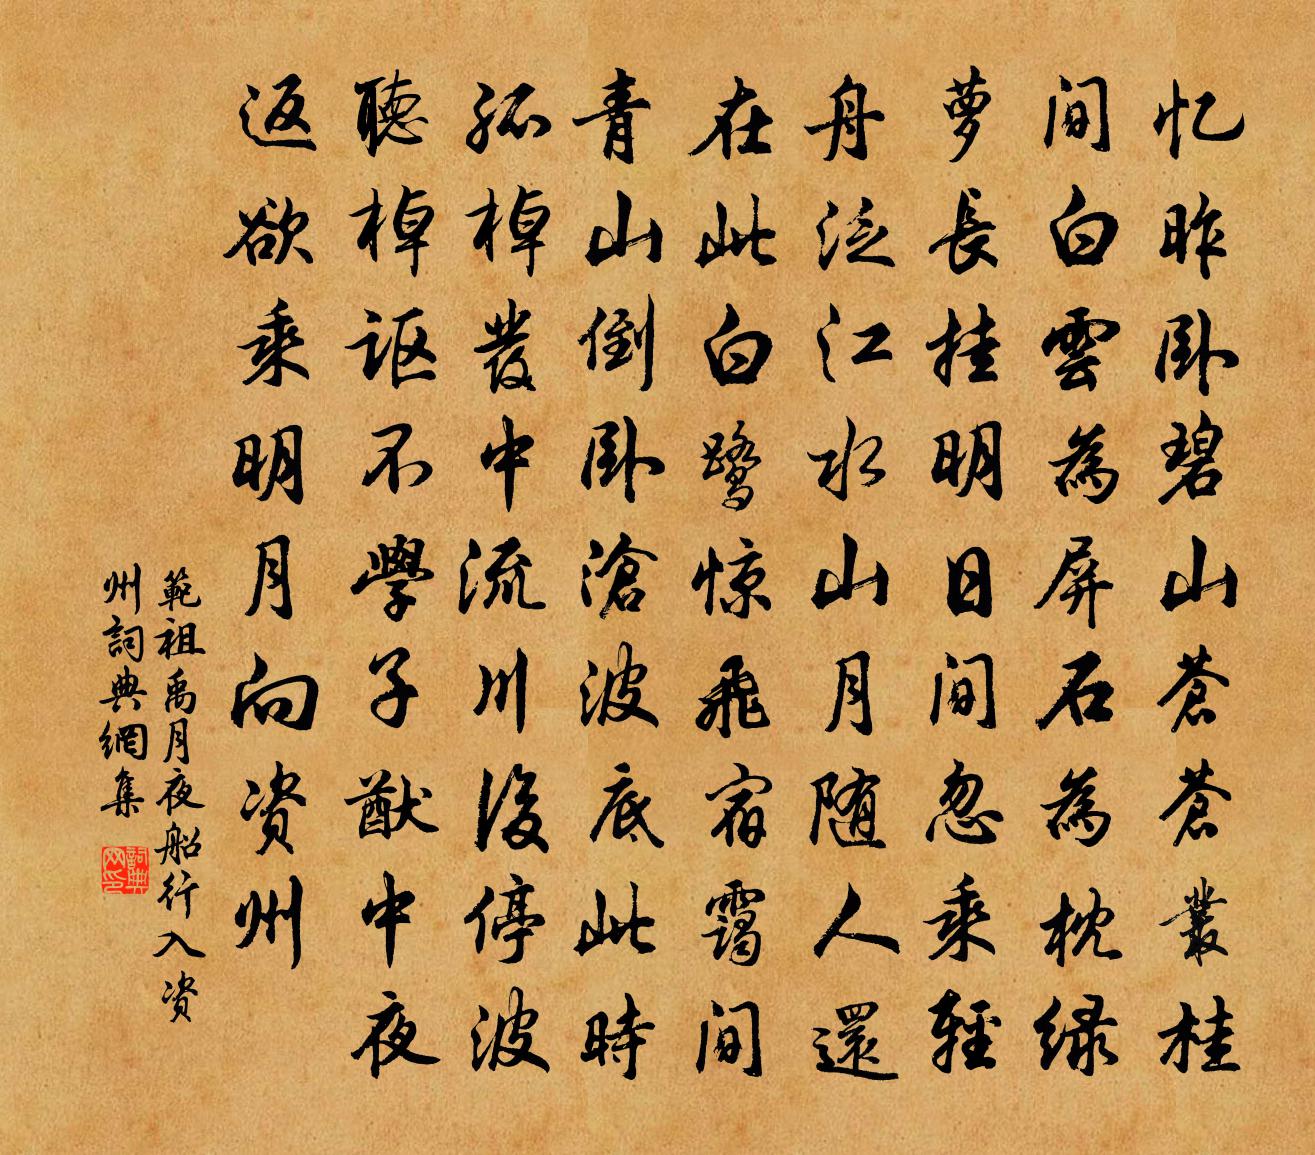 忆昨卧碧山苍苍叢桂
间白雲為屏石為枕绿
萝長挂明日间忽乘輕
舟泛江水山月随人還
在此白鹭惊飛宿霭间
青山倒卧滄波底此時
孤棹發中流川後停波
聽棹讴不學子猷中夜
返欲乘明月向资州
範祖禹月夜船行入资
州詞典網集
詞典网印